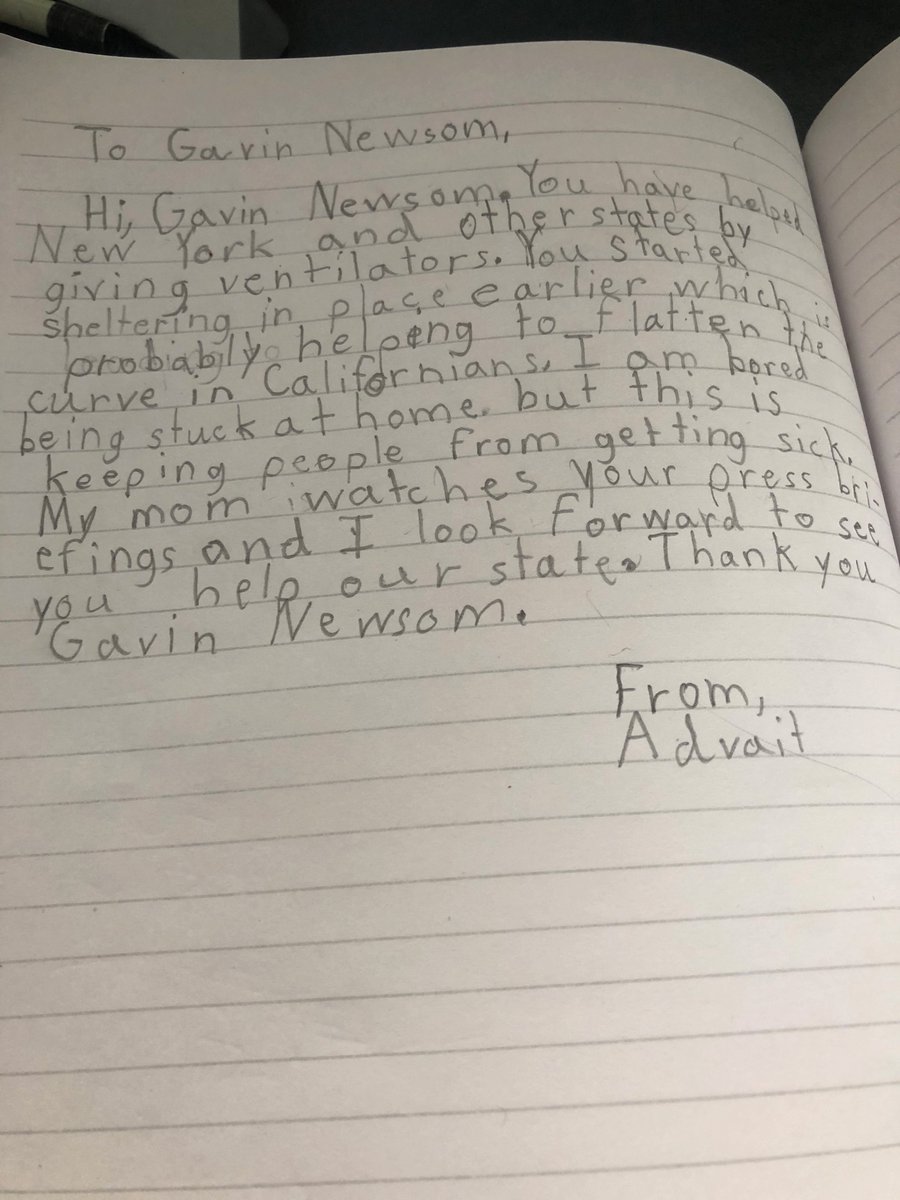 To Gavin Newsom,
Hi, Gavin Newsom. You have helped
New York and other states by
giving ventilators. You started
sheltering in place earlier which is
probiabily helping to flatten the
curve in Californians. I am bored
being stuck at home. but this is
keeping people from getting sick.
My mom watches your press bri-
efings and I look forward to see
you help our state. Thank you
Gavin Newsom.
From,
Advait